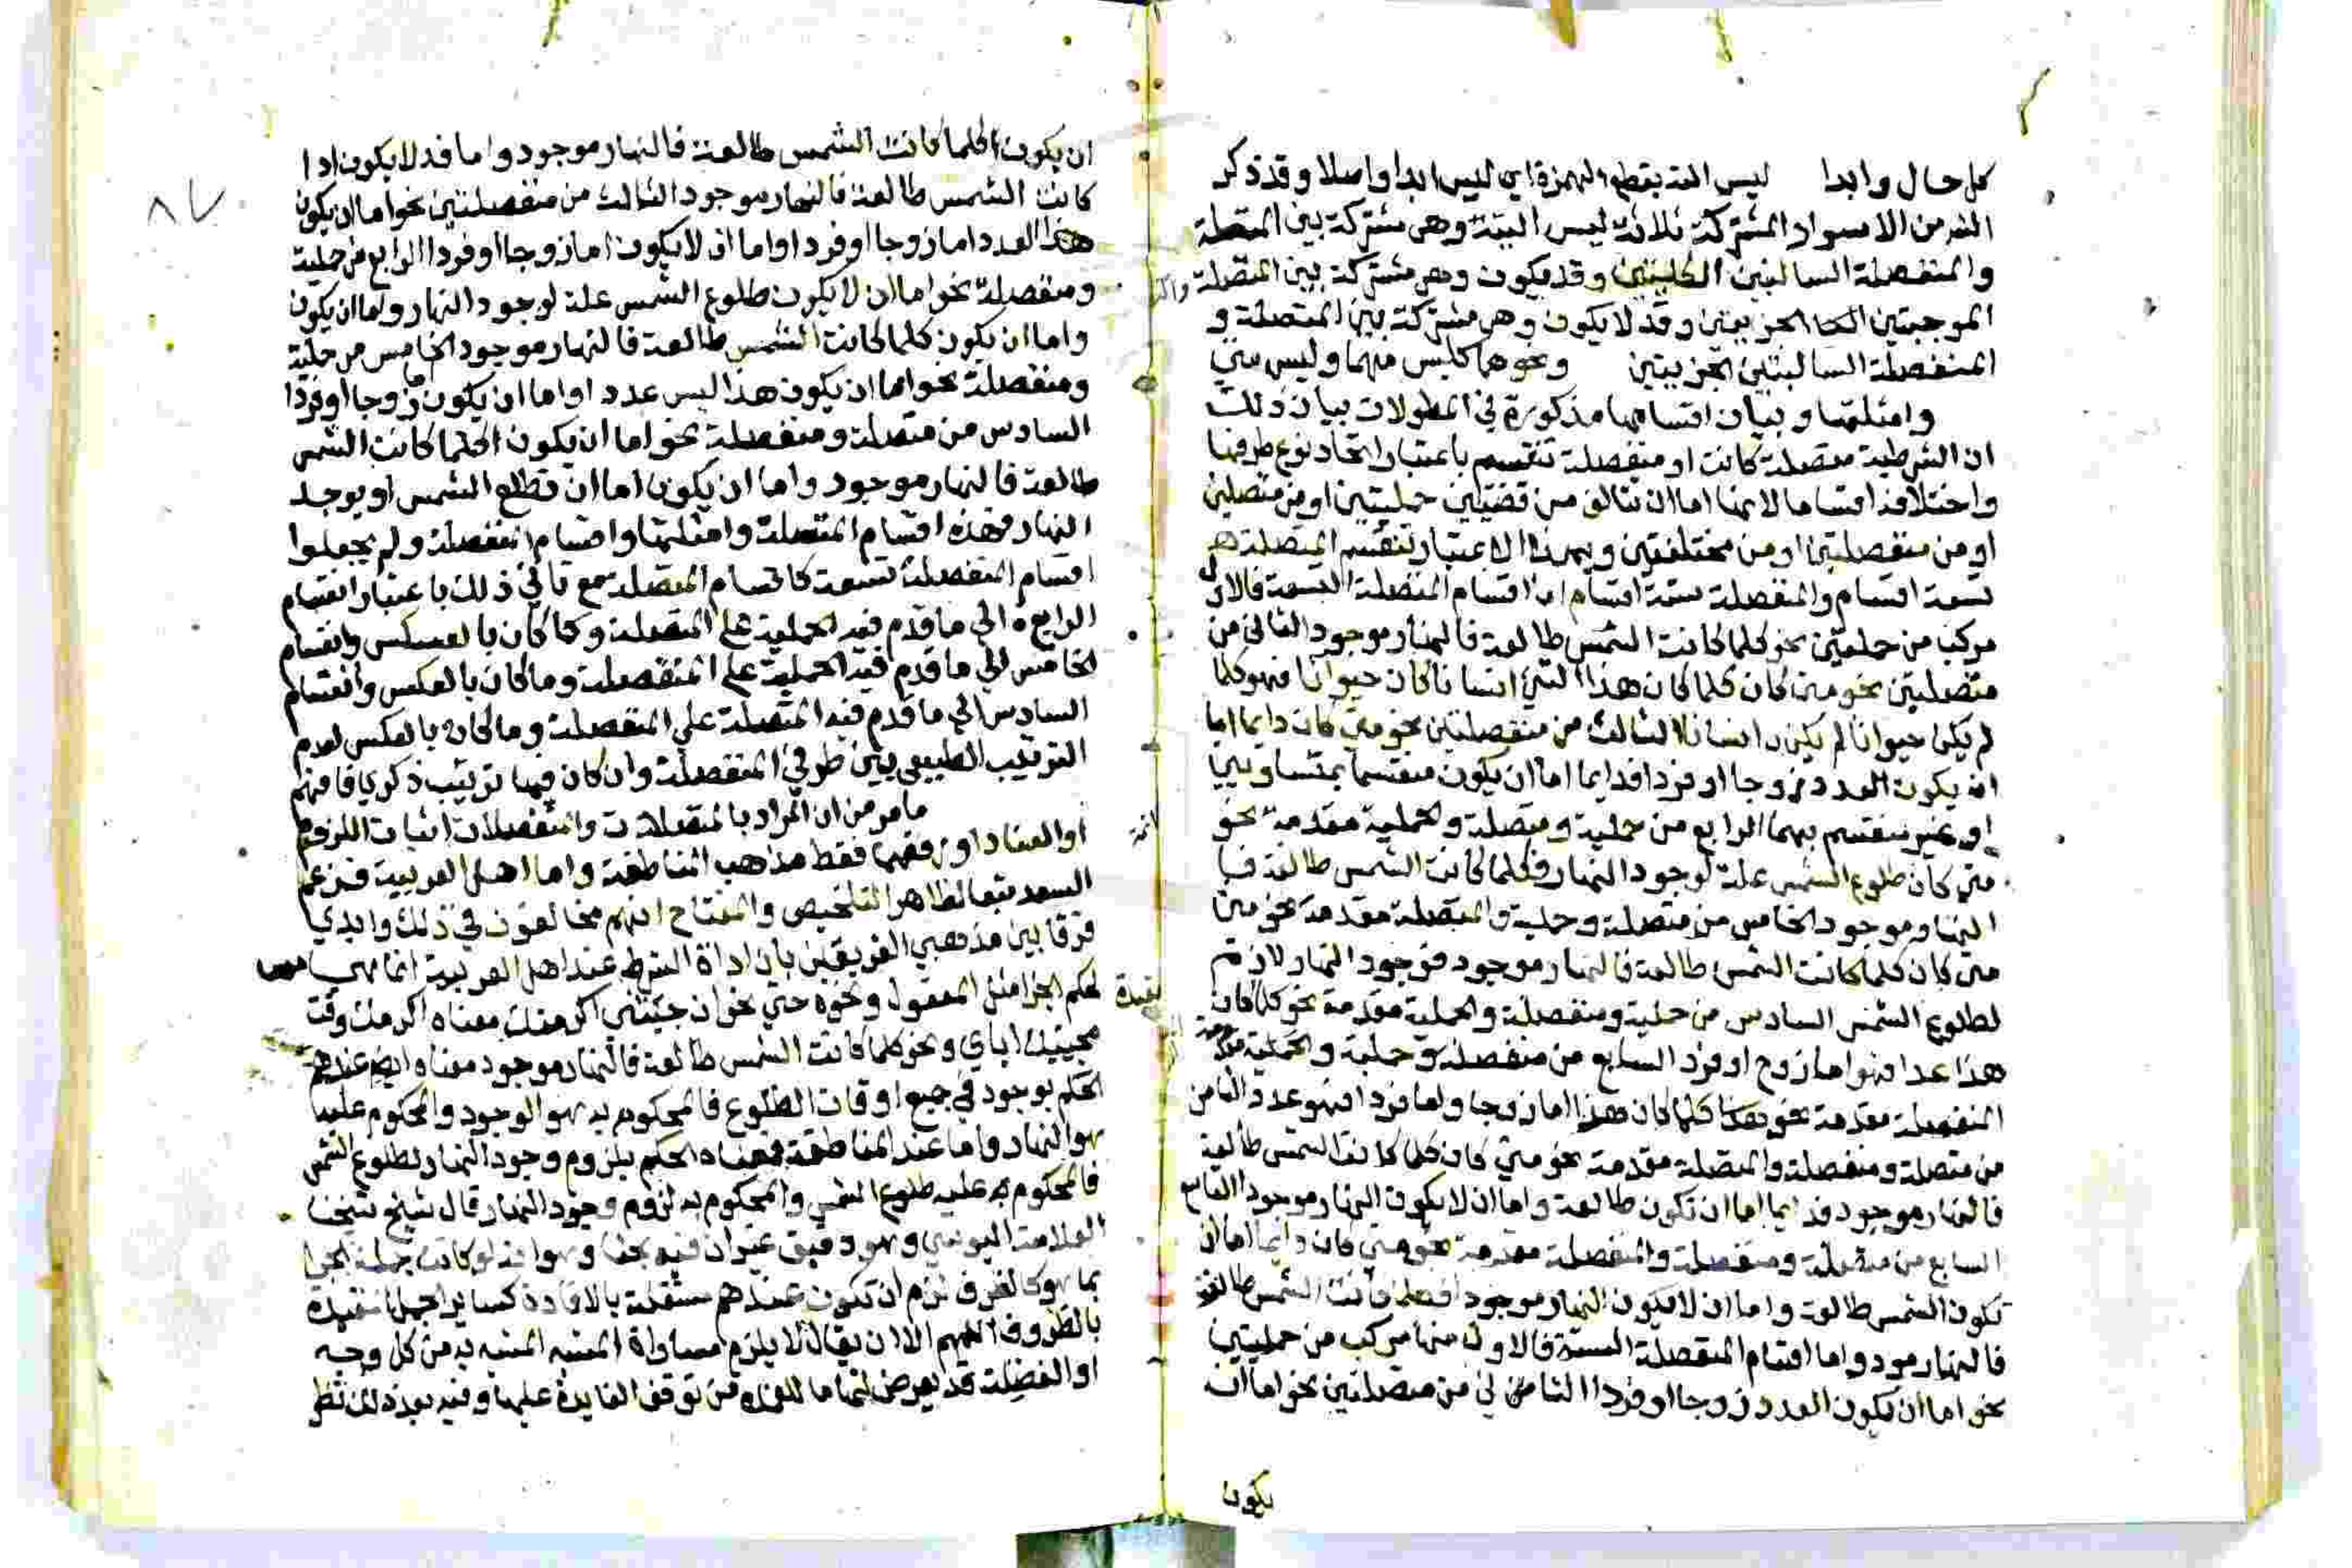 كل حال وابدا ليس البتة بقطع الهمزة اي ليس ابدا واصلا وقد ذكر
الش من الاسوار المشتركة ثلاثة ليس البتة وهي مشتركة بين المتصلة
والمنفصلة السالبتين الكليتين وقد يكون وهي مشتركة بين المتصلة
الموجبتين الجزييتين وقد لا يكون وهي مشتركة بين المتصلة و
المنفصلة السالبتين الجزييتين ونحوهما كليس مهما وليس متي
وامثلتها وبيان اقسامها مذكورة في المطولات بيان ذلك
ان الشرطية متصلة كانت او منفصلة تنقسم باعتبار اتحاد نوع طرفيها
واختلافه اقساما لانها اما ان تتالف من قضيتين حمليتين او من متصلتين
او من منفصلتين او من مختلفتين وبهذا الاعتبار تنقسم المتصلة
تسعة اقسام والمنفصلة ستة اقسام اما اقسام المتصلة التسعة فالاول
مركب من حمليتين نحو كلما كانت الشمس طالعة فالنهار موجود الثاني من
متصلتين نحو متي كان كلما كان هذا الشي انسانا كان حيوانا فهو كلما
لم يكن حيوانا لم يكن انسانا الثالث من منفصلتين نحو متي كان دايما اما
ان يكون العدد زوجا او فردا فدايما اما ان يكون منقسما بمتساويين
او غير منقسم بهما الرابع من حملية ومتصلة والحملية مقدمة نحو
متي كان طلوع الشمس علة لوجود النهار فكلما كانت الشمس طالعة فا
النهار موجود الخامس من متصلة وحملية والمتصلة مقدمة نحو متي
متي كان كلما كانت الشمس طالعة فالنهار موجود فوجود النهار لازم
لطلوع الشمس السادس من حملية ومنفصلة والحملية مقدمة نحو كلما كان
هذا عددا فهو اما زوج او فرد السابع من منفصلة وحملية والحملية مقدمة
المنفصلة مقدمة نحو كلما كان هذا اما زوجا واما فردا فهو عدد الثامن
من متصلة ومنفصلة والمتصلة مقدمة نحو متي كان كلما كانت الشمس طالعة
فالنهار موجود فدايما اما ان تكون طالعة واما ان لا يكون النهار موجودا التاسع
السابع من متصلة ومنفصلة والمنفصلة مقدمة نحو متي كان دايما اما ان
تكون الشمس طالعة واما ان لا يكون النهار موجودا فكلما كانت الشمس طالعة
فالنهار موجود واما اقسام المنفصلة الستة فالاول منها مركب من حمليتين
نحو اما ان يكون العدد زوجا او فردا الثاني من متصلتين نحو اما ان
يكون
ان يكون كلما كانت الشمس طالعة فالنهار موجود واما قد لا يكون اذا
كانت الشمس طالعة فالنهار موجود الثالث من منفصلتين نحو اما ان يكون
هذا العدد اما زوجا او فردا واما ان لا يكون اما زوجا او فردا الرابع من حملية
ومتصلة نحو اما ان لا يكون طلوع الشمس علة لوجود النهار واما ان يكون
واما ان يكون كلما كانت الشمس طالعة فالنهار موجود الخامس من حملية
ومنفصلة نحو اما ان يكون هذا ليس عددا واما ان يكون زوجا او فردا
السادس من متصلة ومنفصلة نحو اما ان يكون كلما كانت الشمس
طالعة فالنهار موجود واما ان يكون اما ان تطلع الشمس او يوجد
النهار فهذه اقسام المتصلة وامثلتها واقسام المنفصلة ولم يجعلوا
اقسام المنفصلة تسعة كاقسام المتصلة مع تاتي ذلك باعتبار انقسام
الرابع الي ما قدم فيه الحملية علي المتصلة وما كان بالعكس وانقسام
الخامس الي ما قدم فيه الحملية علي المنفصلة وما كان بالعكس وانقسام
السادس الي ما قدم فيه المتصلة علي المنفصلة وما كان بالعكس لعدم
الترتيب الطبيعي بين طرفي المنفصلة وان كان فيها ترتيب ذكري فافهم
ما مر من ان المراد بالمتصلات والمنفصلات اثبات اللزوم
او العناد او رفعهما فقط مذاهب المناطقة واما اهل العربية فزعم
السعد تبعا لظاهر التلخيص والمفتاح انهم مخالفون في ذلك وابدي
فرقا بين مذهبي الفريقين بان اداة الشرط عند اهل العربية انما هي
لحكم الجزا مثل المفعول ونحوه حتي نحو ان جيتني اكرمتك معناه اكرمك وقت
مجييك اياي ونحو كلما كانت الشمس طالعة فالنهار موجود معناه عندهم
الحكم بوجود في جميع اوقات الطلوع فالمحكوم به هو الوجود والمحكوم عليه
هو النهار واما عند المناطقة فمعناه الحكم بلزوم وجود النهار لطلوع الشمس
فالمحكوم عليه طلوع الشمس والمحكوم به لزوم وجود النهار قال شيخ شيخنا
العلامة اليوسي وهو دقيق غير ان فيه بحثا وهو انه لو كانت جملة الجزا
بما هو كالظرف لزم ان تكون عندهم مستقلة بالافادة كساير الجمل المقيدة
بالظروف اللهم الا ان يقال لا يلزم مساواة المشبه المشبه به من كل وجه
او الفضلة قد يعرض لها ما من توقف الفايدة عليها وفيه بعد ذلك نظر